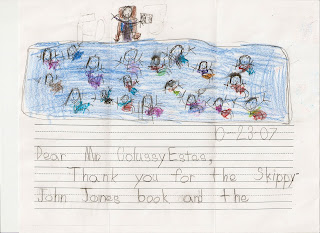 10-23-07
Dear Ms
Thank you for the Skippy
John Jones book and the